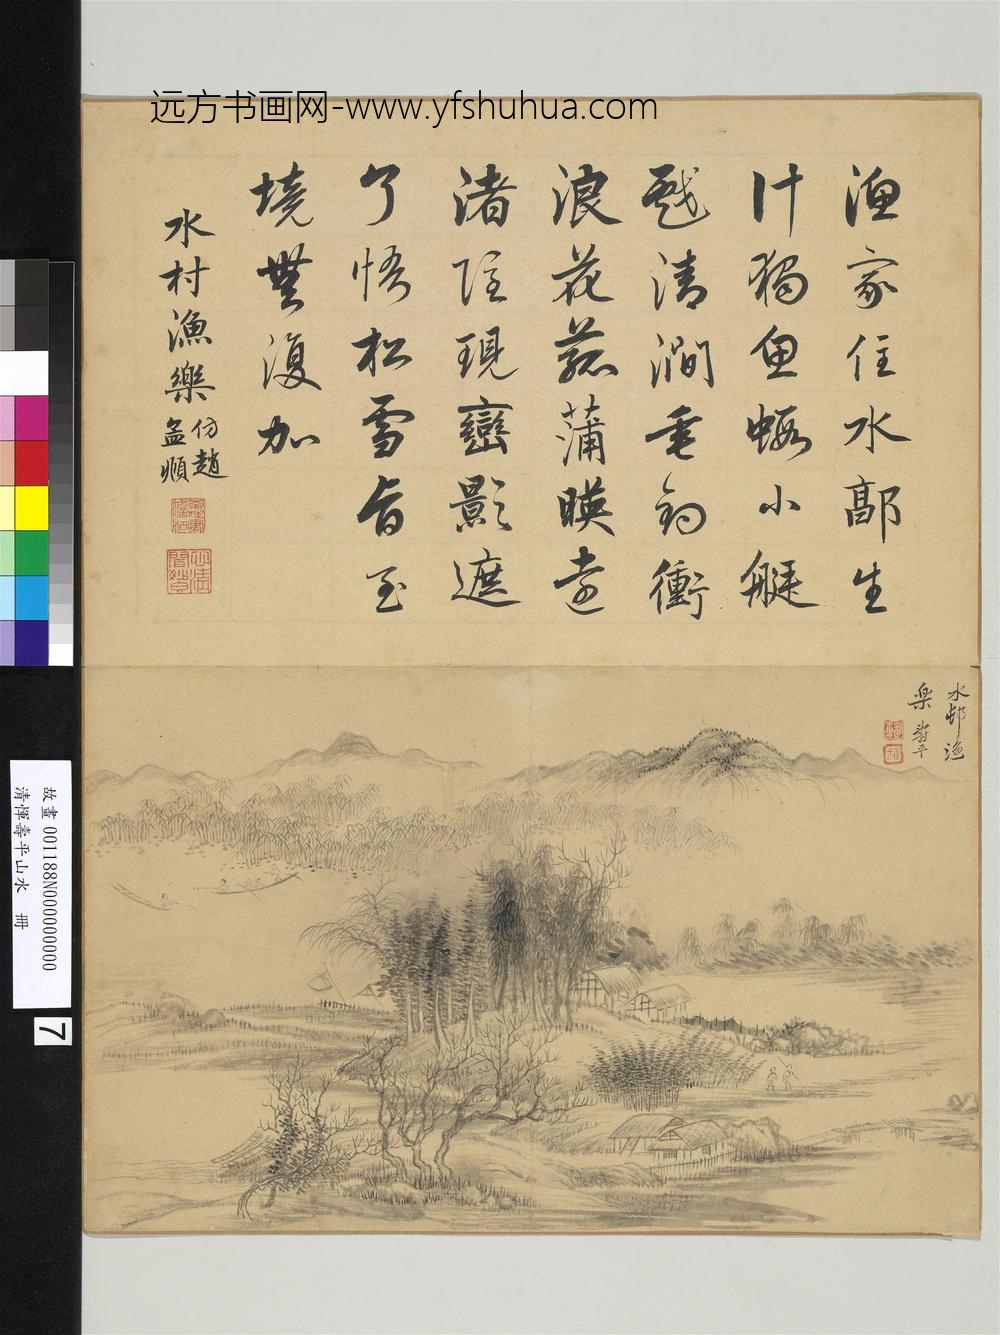 远方书画网-www.yfshuhua.com
漁家住水鄗生
计獨魚蝦小艇
戲清澗垂釣衝
浪花菰蒲暎遠
渚隱現巒影遮
了悟松雪旨至
境無復加
水村漁樂仿趙
孟順
水邨漁
樂 壽平
故畫 001188N000000000
清惲壽平山水 冊
7